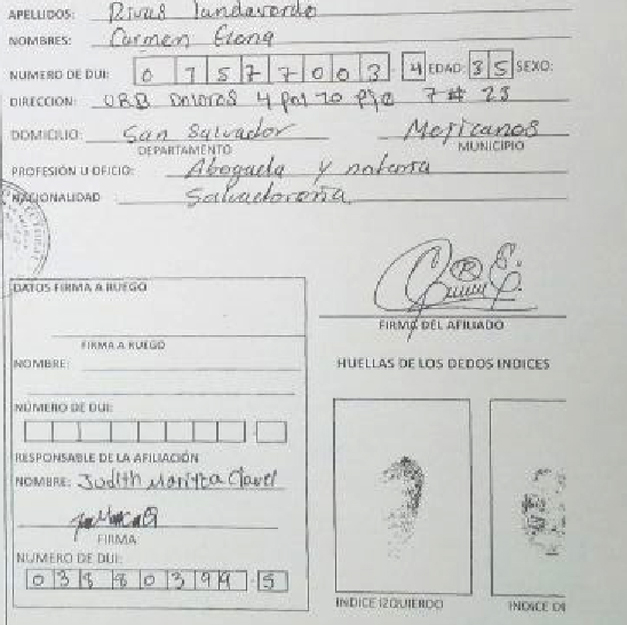 APELLIDOS: Rivas Landaverde
NOMBRES: Carmen Elena
NUMERO DE DUI: 0 1 5 7 7 0 0 3 4 EDAD: 3 5 SEXO:
DIRECCION: URB Dolores 4 pol 70 pje 7 # 23
DOMICILIO: San Salvador Mejicanos
DEPARTAMENTO MUNICIPIO
PROFESIÓN U OFICIO: Abogada y notaria
NACIONALIDAD Salvadoreña
DATOS FIRMA A RUEGO
FIRMA DEL AFILIADO
FIRMA A RUEGO
NOMBRE:
HUELLAS DE LOS DEDOS INDICES
NÚMERO DE DUI:
RESPONSABLE DE LA AFILIACIÓN
NOMBRE: Judith Maritza Clavel
FIRMA
NUMERO DE DUI:
0 3 8 8 0 3 9 9 - 5
INDICE IZQUIERDO INDICE DE